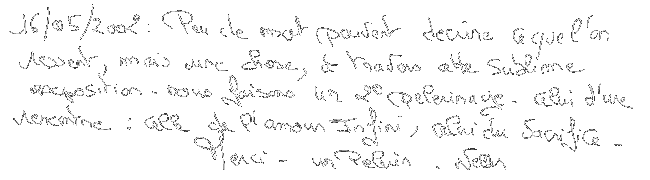 16/05/2002 : Peu de mot peuvent decrire ce que l'on
ressent, mais une chose, à travers cette sublime
exposition - nous faisons un 2e pelerinage - celui d'une
rencontre : celle de l'amour Infini, celui du Sacrifice -
Merci - un Pelerin.